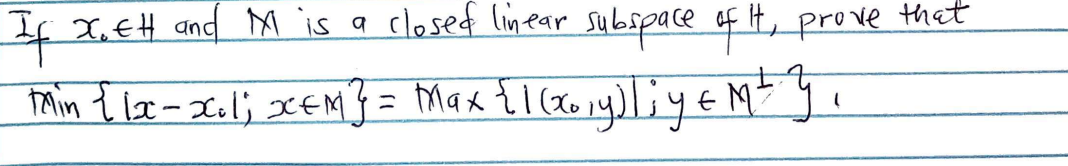 If x₀∈H and M is a closed linear subspace of H, prove that
Min {|x-x₀|; x∈M} = Max {|(x₀,y)|; y∈M^⊥}.